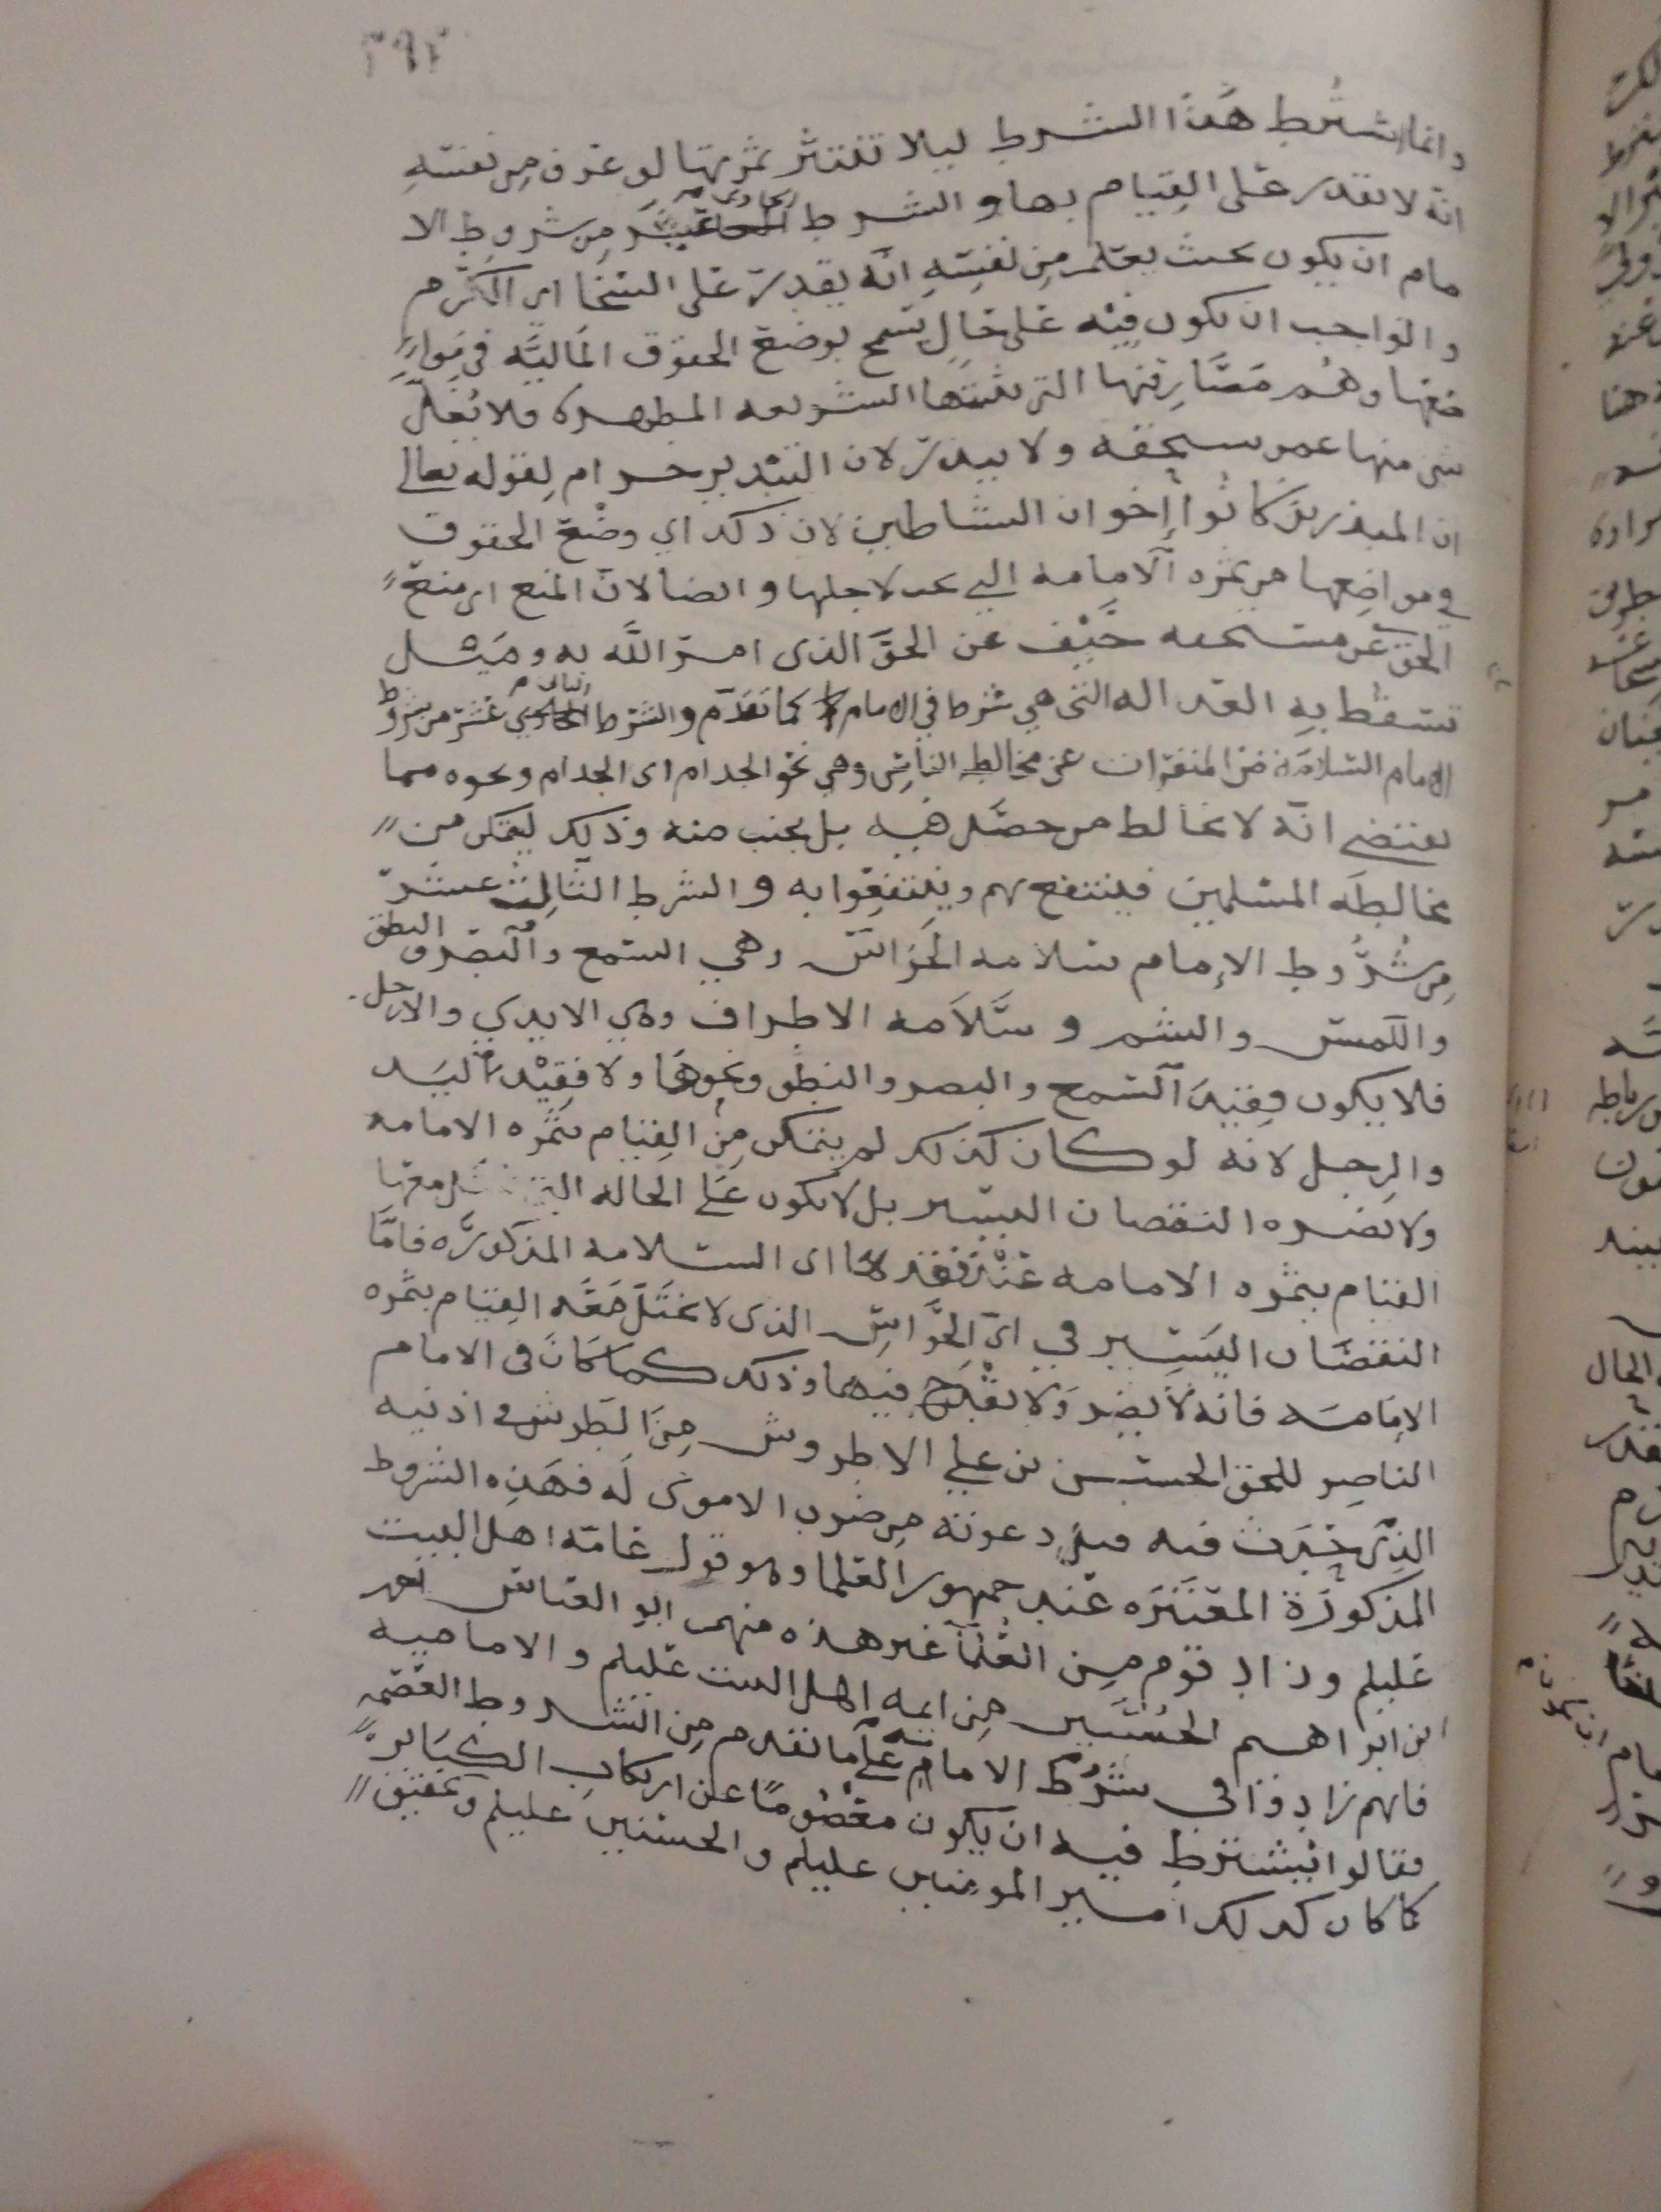 ٣٩٣
وانما اشترط هذا الشرط ليلا تنتثر ثمرتها لو عرف من نفسه
انه لا يقدر على القيام بها و الشرط الحادي عشر من شروط الا
مام ان يكون بحيث يعلم من نفسه انه يقدر على السخا اي الكرم
و الواجب ان يكون فيه على حال يسمح بوضع الحقوق الماليه في موا
ضعها وهم مصارفها التي بينتها الشريعه المطهره فلا يغل
شي منها عمن يستحقه ولا يبذر لان التبذير حرام لقوله تعالى
ان المبذرين كانوا إخوان الشياطين لان ذلك اي وضع الحقوق
في مواضعها من ثمره الامامه التي لاجلها و ايضا لان المنع اي منع
الحق عن مستحقه حيف عن الحق الذي امر الله به و ميل
تسقط به العداله التي هي شرط في الامام كما تقدم والشرط الثاني عشر من شروط
الامام السلامه من المنفرات عن مخالطه الناس وهي نحو الجذام اي الجذام ونحوه مما
يقتضي انه لا يخالط من حصل فيه بل يجنب منه وذلك ليتمكن من
مخالطه المسلمين فينتفع بهم وينتفعوا به و الشرط الثالث عشر
من شروط الإمام سلامه الحواس وهي السمع والبصر و النطق
واللمس والشم و سلامه الاطراف وهي الايدي والارجل
فلا يكون فقيد السمع والبصر والنطق ونحوها ولا فقيد اليد
والرجل لانه لو كان كذلك لم يتمكن من القيام بثمره الامامه
ولا يضره النقصان اليسير بل لا يكون على الحاله التي معها
القيام بثمره الامامه عند فقدها اي السلامه المذكوره فاما
النقصان اليسير في اي الحواس الذي لا يختل معه القيام بثمره
الإمامه فانه لا يضر ولا يقدح فيها وذلك كما كان في الامام
الناصر للحق الحسن بن علي الاطروش من الطرش في اذنيه
الذي حدث فيه دعوته من ضرب الاموي له فهذه الشروط
المذكورة المعتبره عند جمهور العلما وهو قول عامه اهل البيت
عليلم وزاد قوم من العلما غير هذه منهم ابو العباس احمد
ابن ابراهيم الحسني من ايمه اهل البيت عليلم و الاماميه
فانهم زادوا في شرط الامامه على ما تقدم من الشروط العصمه
فقالوا يشترط فيه ان يكون معصوما عن ارتكاب الكباير
كما كان كذلك امير المومنين عليلم و الحسنين عليلم وتحقيق